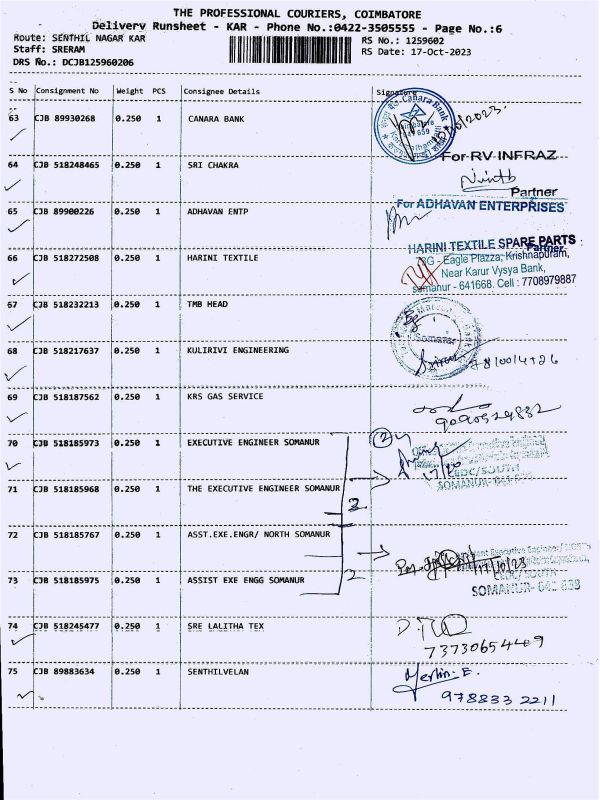 THE PROFESSIONAL COURIERS, COIMBATORE
Delivery Runsheet - KAR - Phone No.:0422-3505555 - Page No.:6
Route: SENTHIL NAGAR KAR
RS No.: 1259602
Staff: SRERAM
RS Date: 17-Oct-2023
DRS No.: DCJB125960206
S No Consignment No Weight PCS Consignee Details Signature
63 CJB 89930268 0.250 1 CANARA BANK
Canara Bank
64 CJB 518248465 0.250 1 SRI CHAKRA
For RV INFRAZ
Partner
65 CJB 89900226 0.250 1 ADHAVAN ENTP
For ADHAVAN ENTERPRISES
Partner
66 CJB 518272508 0.250 1 HARINI TEXTILE
HARINI TEXTILE SPARE PARTS
Eagle Plazza, Krishnapuram,
Near Karur Vysya Bank,
somanur - 641668. Cell : 7708979887
67 CJB 518232213 0.250 1 TMB HEAD
Somanur
68 CJB 518217637 0.250 1 KULIRIVI ENGINEERING
69 CJB 518187562 0.250 1 KRS GAS SERVICE
70 CJB 518185973 0.250 1 EXECUTIVE ENGINEER SOMANUR
17/10
CEDC/SOUTH
SOMANUR
71 CJB 518185968 0.250 1 THE EXECUTIVE ENGINEER SOMANUR
2
72 CJB 518185767 0.250 1 ASST.EXE.ENGR/ NORTH SOMANUR
17/10/23
73 CJB 518185975 0.250 1 ASSIST EXE ENGG SOMANUR
2
CEDC/ SOUTH
SOMANUR-
74 CJB 518245477 0.250 1 SRE LALITHA TEX
75 CJB 89883634 0.250 1 SENTHILVELAN
Merlin. E.
978833 2211